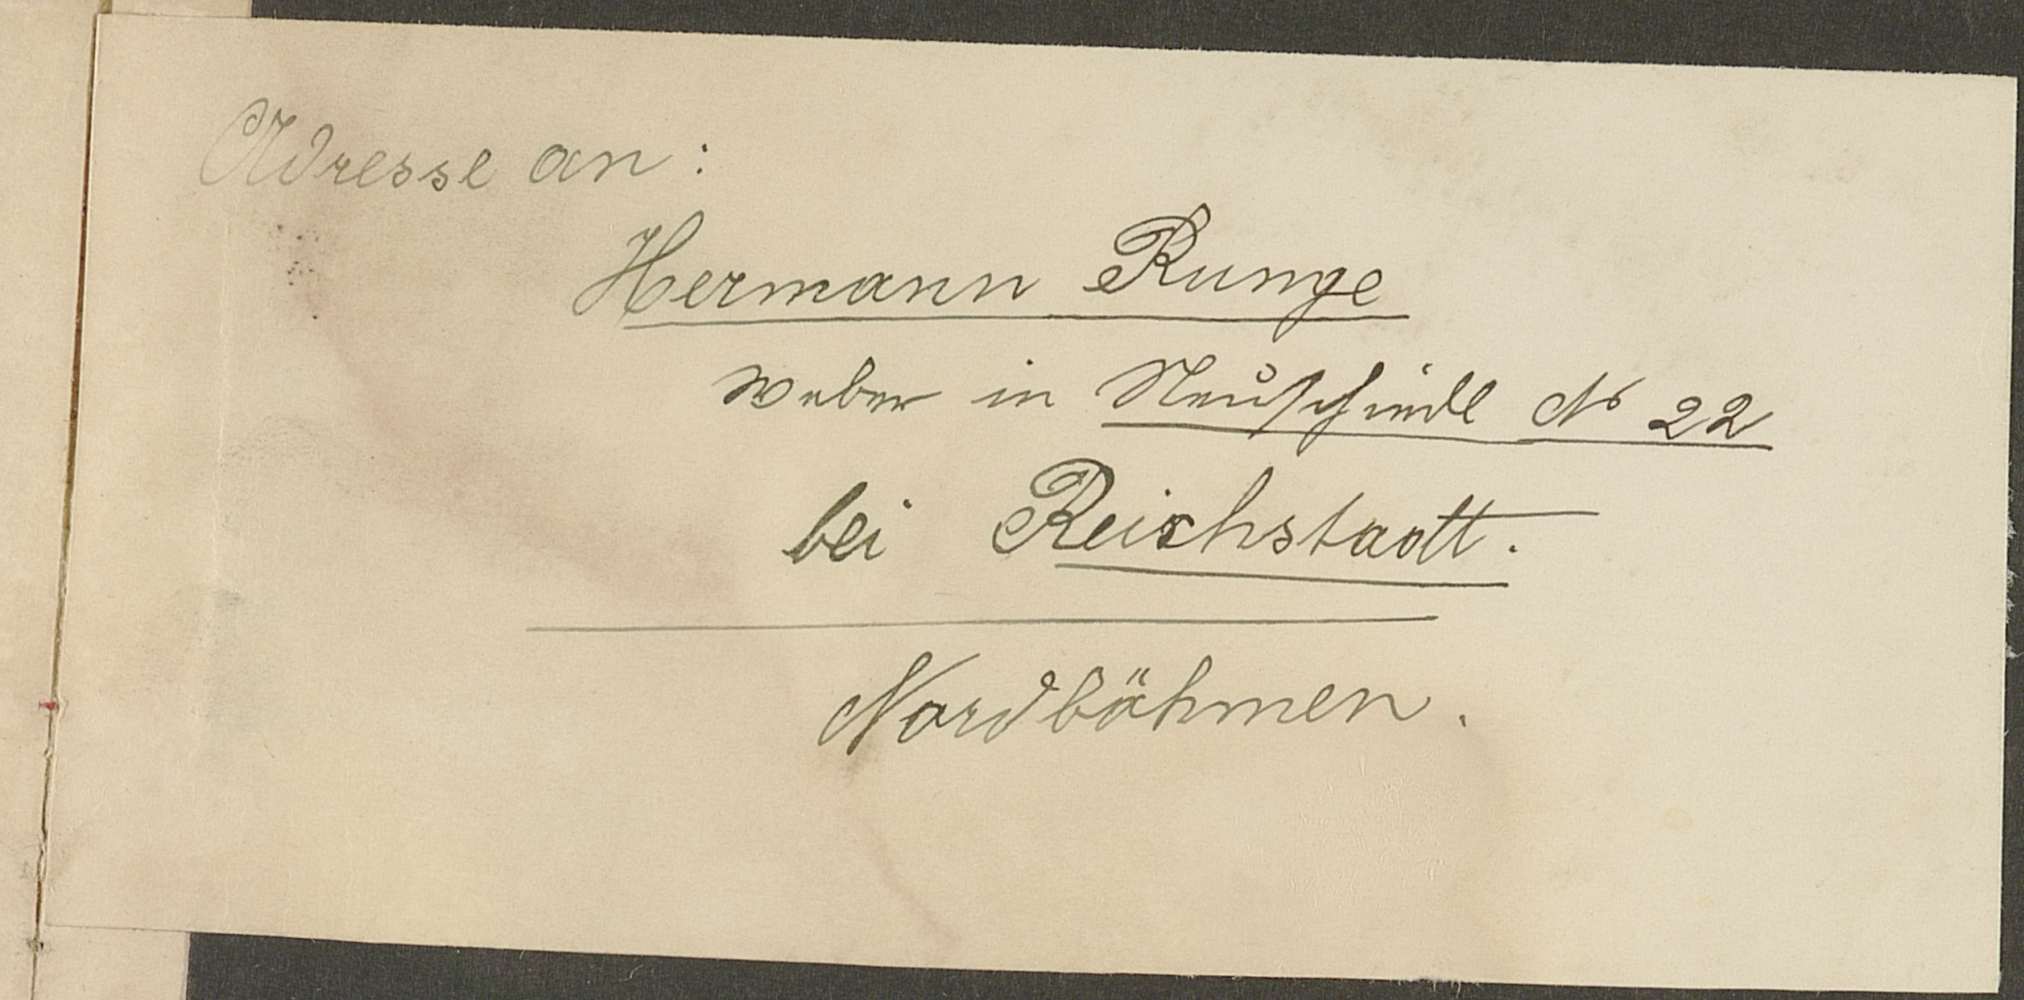 Adresse an:
Hermann Runge
Weber in Neuschiedl No 22
bei Reichstadt.
Nordböhmen.